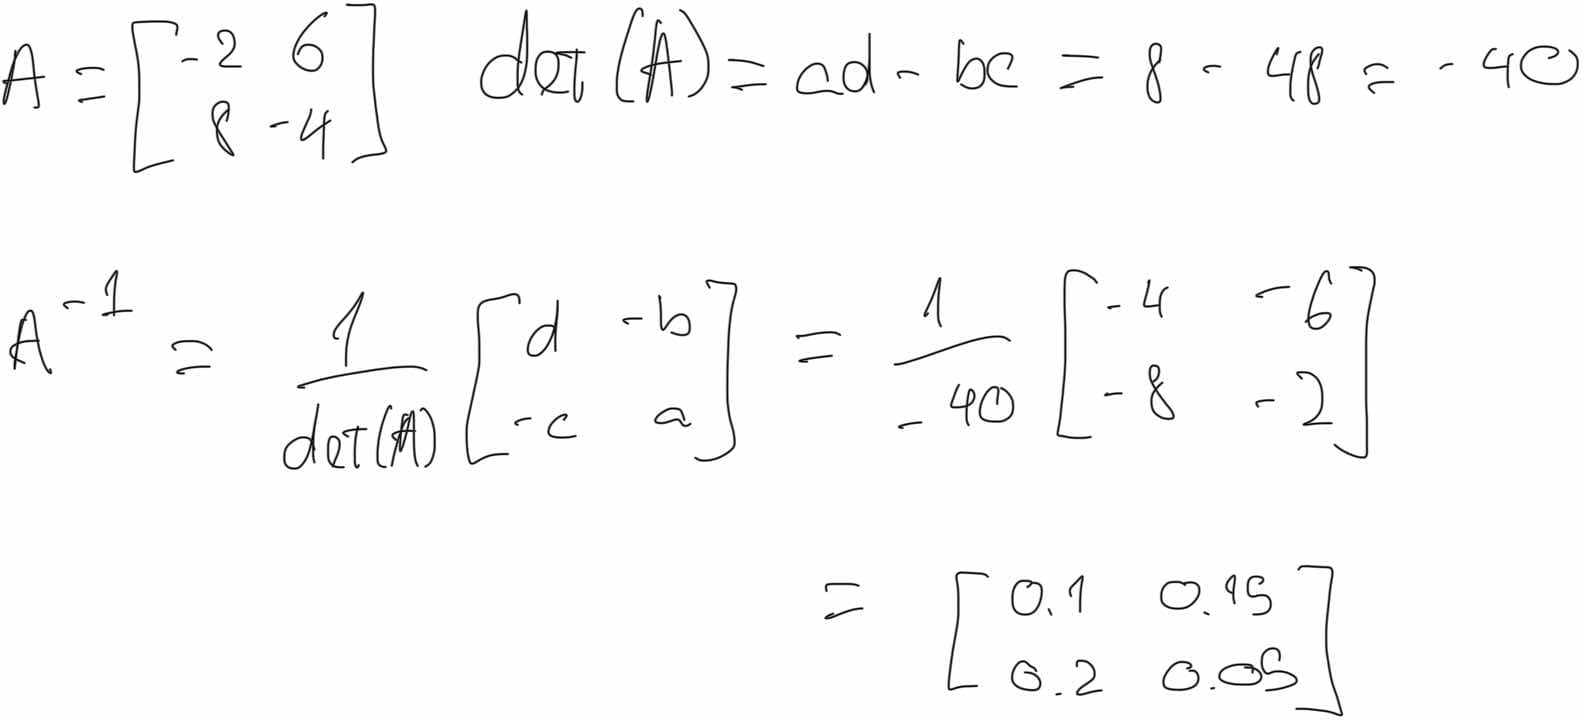 A = [ -2 6 ; 8 -4 ] det (A) = ad - bc = 8 - 48 = - 40
A^-1 = 1 / det(A) [ d -b ; -c a ] = 1 / -40 [ -4 -6 ; -8 -2 ]
= [ 0.1 0.15 ; 0.2 0.05 ]